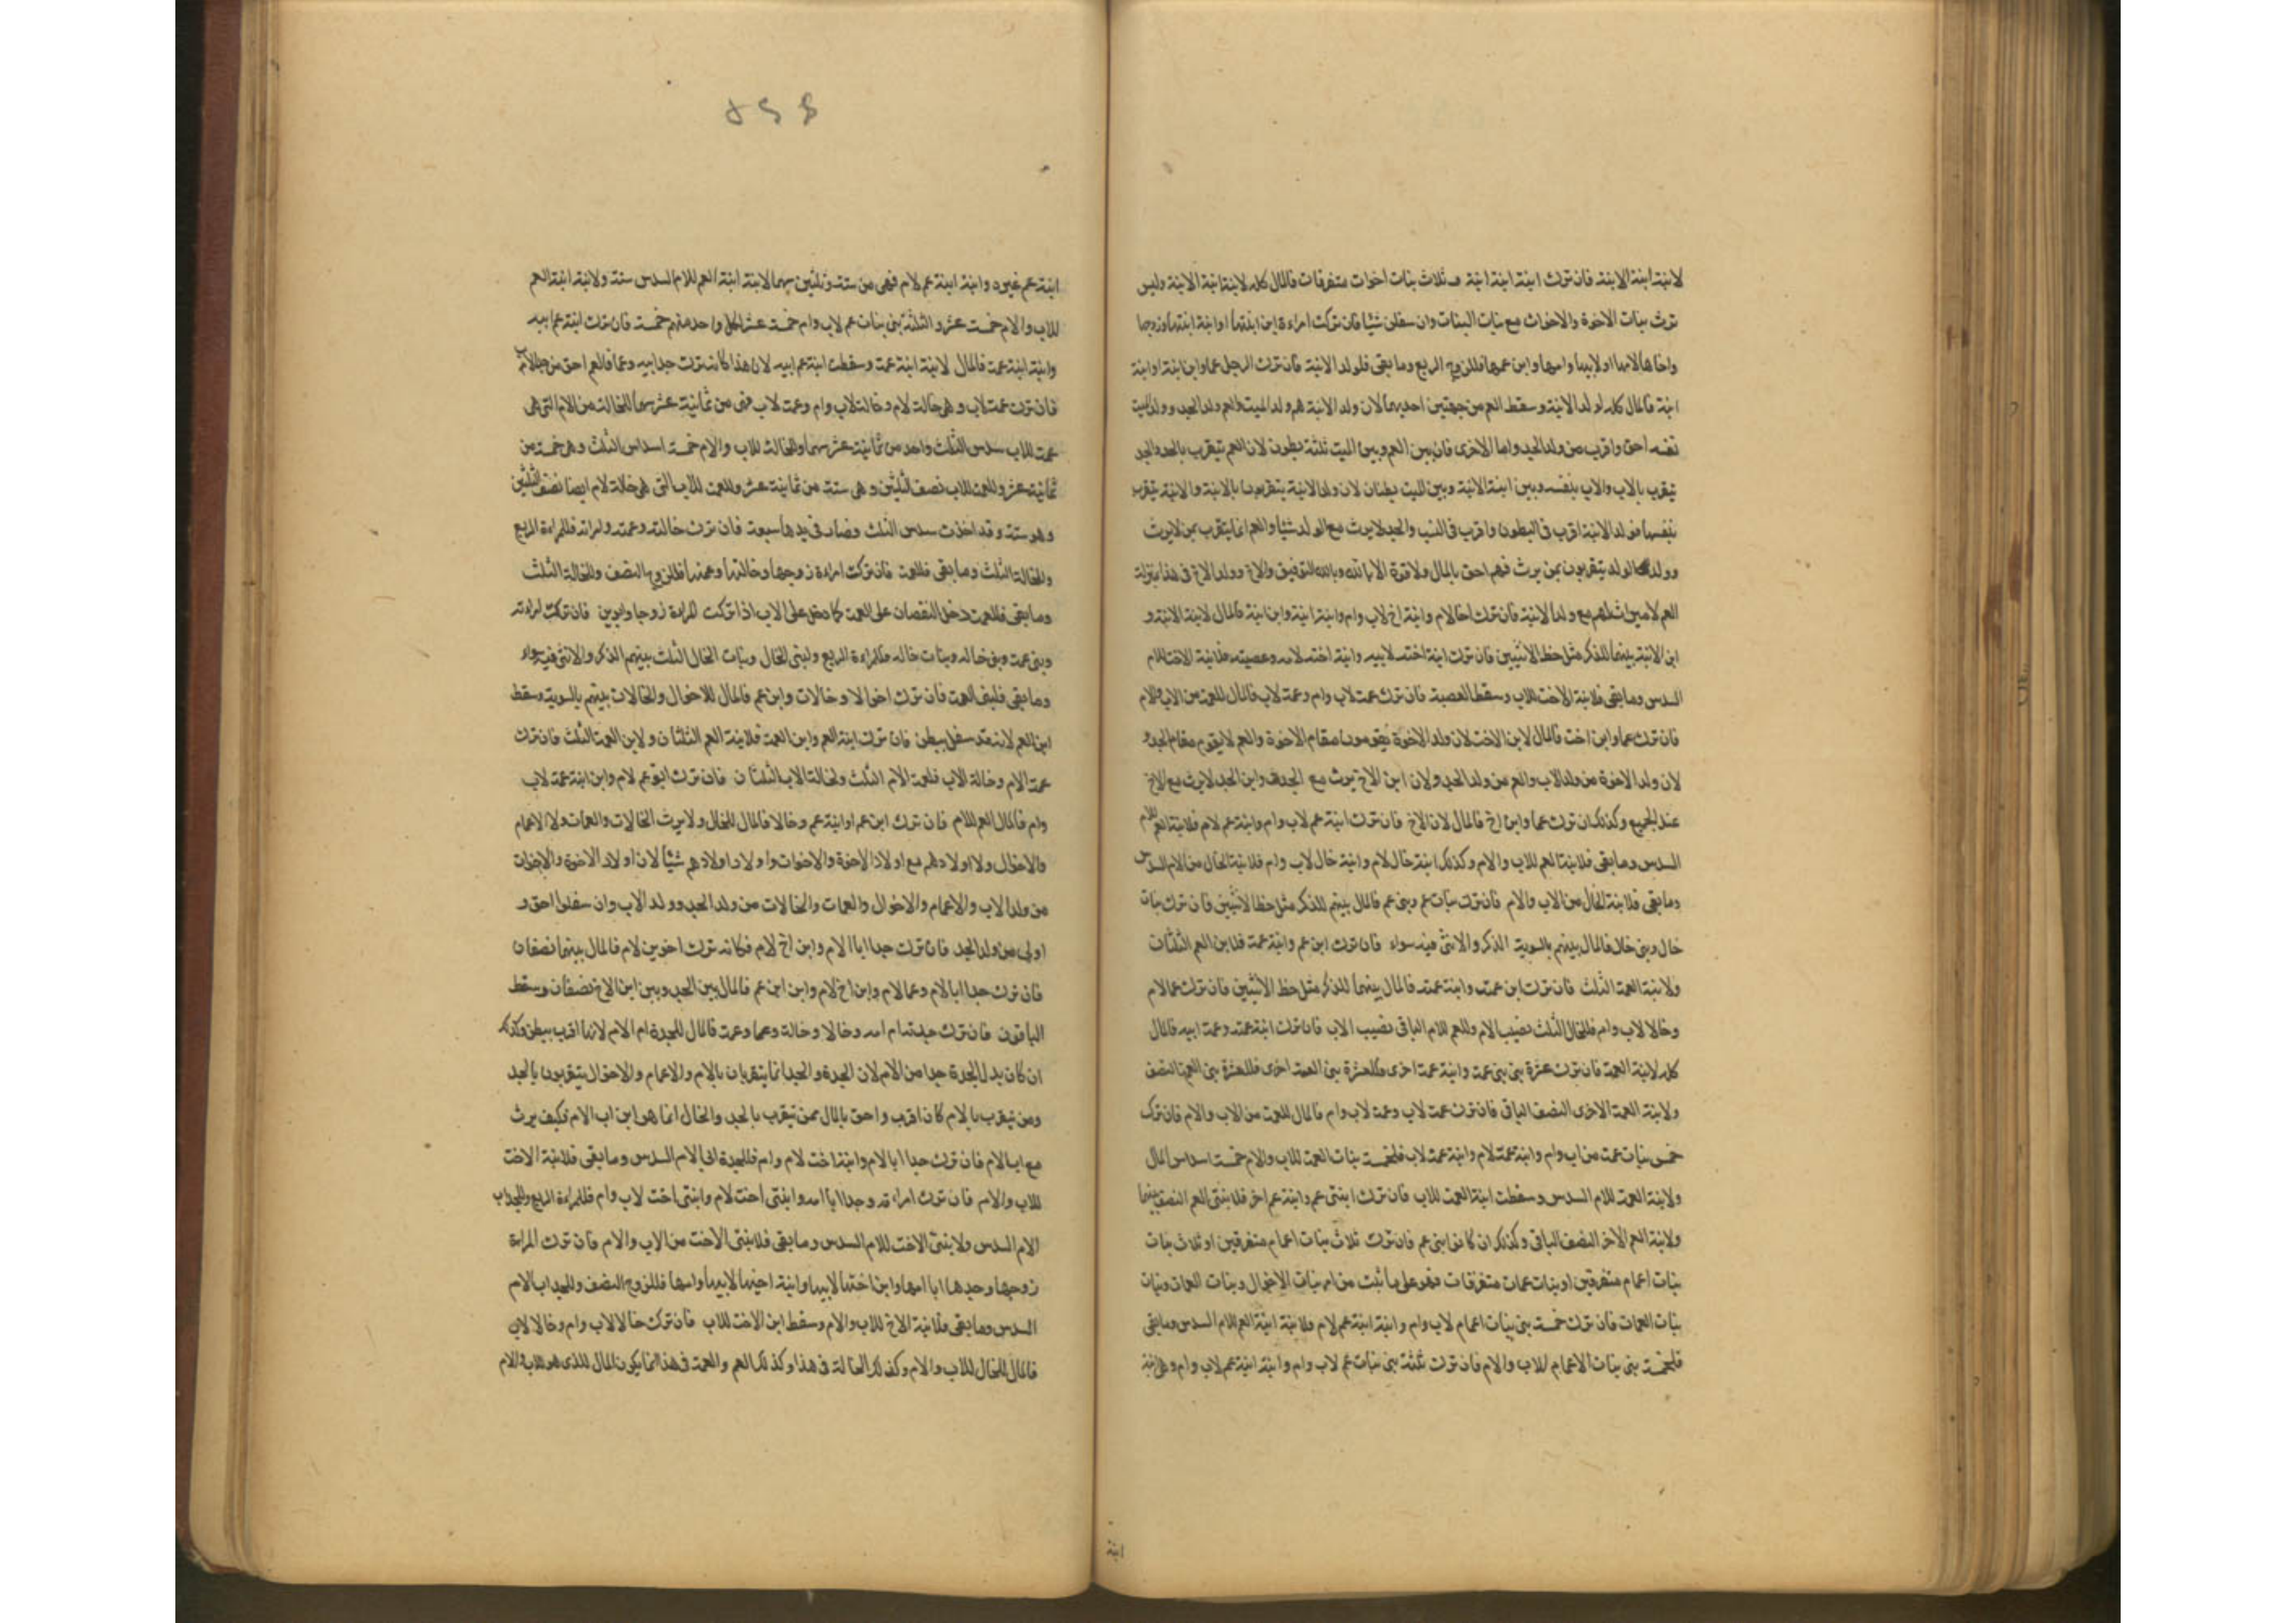 لابنة ابنة الابنة فان ترك ابنة ابنة ابنة و ثلاث بنات اخوات متفرقات فالمال كله لابنة ابنة الابنة وليس
ترث بنات الاخوة والاخوات مع بنات البنات وان سفلن شيئا فان تركت امراءة ابن ابنتها او ابنة ابنتها وزوجها
واخاها لامها او لابيها وامها وابن عمها فللزوج الربع وما بقى فلولد الابنة فان ترك الرجل عما وابن ابنة او ابنة
ابنة فالمال كله لولد الابنة وسقط العم من جهتين احديهما لان ولد الابنة هم ولد الميت والعم ولد الجد وولد الميت
نفسه احق واقرب من ولد الجد واما الاخرى فان بين العم وبين الميت ثلثة بطون لان العم يتقرب بالجد والجد
يتقرب بالاب والاب بنفسه وبين ابنة الابنة وبين الميت بطنان لان ولد الابنة يتقربون بالابنة والابنة تتقرب
بنفسها فولد الابنة اقرب فى البطون واقرب فى النسب والجد لا يرث مع الولد شيئا والعم انما يتقرب بمن لا يرث
وولد الولد يتقربون بمن يرث فهم احق بالمال ولا قوة الا بالله وبالله التوفيق والاخ وولد الاخ فى هذا بمنزلة
العم لا ميراث لهم مع ولد الابنة فان ترك اخا لام وابنة اخ لاب وام وابنة ابنة وابن ابنة فالمال لابنة الابنة و
ابن الابنة بينهما للذكر مثل حظ الانثيين فان ترك ابنة اخته لابيه وابنة اخته لامه وعصبته فلابنة الاخت للام
السدس وما بقى فلابنة الاخت للاب وسقط العصبة فان ترك عمة لاب وام وعمة لاب فالمال للعمة من الاب والام
فان ترك عما وابن اخت فالمال لابن الاخت لان ولد الاخوة يقومون مقام الاخوة والعم لا يقوم مقام الجد و
لان ولد الاخوة من ولد الاب والعم من ولد الجد ولان ابن الاخ يرث مع الجد وابن الجد لا يرث مع الاخ
عند الجميع وكذلك ان ترك عما وابن اخ فالمال لابن الاخ فان ترك ابنة عم لاب وام وابنة عم لام فلابنة العم للام
السدس وما بقى فلابنة العم للاب والام وكذلك ابنة خال لام وابنة خال لاب وام فلابنة الخال من الام السدس
وما بقى فلابنة الخال من الاب والام فان ترك بنات عم وبنى عم فالمال بينهم للذكر مثل حظ الانثيين فان ترك بنات
خال وبنى خال فالمال بينهم بالسوية الذكر والانثى فيه سواء فان ترك ابن عم وابنة عمة فلابن العم الثلثان
ولابنة العمة الثلث فان ترك ابن عمته وابنة عمته فالمال بينهما للذكر مثل حظ الانثيين فان ترك عما لام
وخالا لاب وام فللخال الثلث نصيب الام وللعم للام الباقى نصيب الاب فان ترك ابنة عمته وعمة ابيه فالمال
كله لابنة العمة فان ترك عشرة بنى بنى عمة وابنة عمة اخرى فللعشرة بنى العمة النصف
ولابنة العمة الاخرى النصف الباقى فان ترك عمة لاب وعمة لاب وام فالمال للعمة من الاب والام فان ترك
خمس بنات عمة من اب وام وابنة عمة لام وابنة عمة لاب فلخمسة بنات العمة للاب والام خمسة اسداس المال
ولابنة العمة للام السدس وسقطت ابنة العمة للاب فان ترك ابنتى عم وابنة عم اخر فلابنتى العم النصف بينهما
ولابنة العم الاخر النصف الباقى وكذلك ان كانوا بنى عم فان ترك ثلاث بنات اعمام متفرقين او ثلاث بنات
بنات اعمام متفرقين او بنات عمات متفرقات فهو على ما ثبت من امر بنات الاخوال وبنات العمات وبنات
بنات العمات فان ترك خمسة بنى بنات اعمام لاب وام وابنة ابنة عم لام فلابنة ابنة العم للام السدس وما بقى
فلخمسة بنى بنات الاعمام للاب والام فان ترك ثلثة بنى بنات عم لاب وام وابنة ابنة عم لاب وام وهى ابنة
ابنة
٤٥٥
ابنة عم غيره وابنة ابنة عم لام فهى من ستة وثلثين سهما لابنة ابنة العم للام السدس ستة ولابنة ابنة العم
للاب والام خمسة عشر والثلثة بنى بنات عم لاب وام خمسة عشر لكل واحد منهم خمسة فان ترك ابنة عم ابيه
وابنة ابنة عمة فالمال لابنة ابنة عمة وسقطت ابنة عم ابيه لان هذا كانه ترك جد ابيه وعما فالعم احق من جد الاب
فان ترك عمة لاب وهى خالة لام وخالة لاب وام وعمة لاب فهى من ثمانية عشر سهما للخالة من الام التى هى
عمة للاب سدس الثلث واحد من ثمانية عشر سهما وللخالة للاب والام خمسة اسداس الثلث وهى خمسة من
ثمانية عشر وللعمة للاب نصف الثلثين وهى ستة من ثمانية عشر وللعمة للاب التى هى خالة لام ايضا نصف الثلثين
وهو ستة وقد اخذت سدس الثلث فصار فى يدها سبعة فان ترك خالته وعمته وامراته فللمراءة الربع
وللخالة الثلث وما بقى فللعمة فان تركت امراءة زوجها وخالتها وعمتها فللزوج النصف وللخالة الثلث
وما بقى فللعمة دخل النقصان على العمة كما دخل على الاب اذا تركت المراءة زوجا وابوين فان ترك امراءته
وبنى عمة وبنى خاله وبنات خاله فللمراءة الربع ولبنى الخال وبنات الخال الثلث بينهم الذكر والانثى فيه سواء
وما بقى فلبنى العمة فان ترك اخوالا وخالات وابن عم فالمال للاخوال والخالات بينهم بالسوية وسقط
ابن العم لانه قد سفل ببطن فان ترك ابنة العم وابن العمة فلابنة العم الثلثان ولابن العمة الثلث فان ترك
عمة الام وخالة الاب فلعمة الام الثلث ولخالة الاب الثلثان فان ترك ابو عم لام وابن ابنة عمة لاب
وام فالمال العم للام فان ترك ابن عم او ابنة عم وخالا فالمال للخال ولا يرث الخالات والعمات ولا الاعمام
والاخوال ولا اولادهم مع اولاد الاخوة والاخوات واولاد اولادهم شيئا لان اولاد الاخوة والاخوات
من ولد الاب والاعمام والاخوال والعمات والخالات من ولد الجد وولد الاب وان سفلوا احق و
اولى من ولد الجد فان ترك جدا ابا الام وابن اخ لام فكانه ترك اخوين لام فالمال بينهما نصفان
فان ترك جدا ابا الام وعما لام وابن اخ لام وابن ابن عم فالمال بين الجد وبين ابن الاخ نصفان وسقط
الباقون فان ترك جدته ام امه وخالا وخالة وعما وعمة فالمال للجدة ام الام لانها اقرب ببطن وكذلك
ان كان بدل الجدة جدا من الام لان الجدة والجد انما يتقربان بالام والاعمام والاخوال يتقربون بالجد
ومن يتقرب بالام كان اقرب واحق بالمال ممن يتقرب بالجد والخال انما هو ابن اب الام فكيف يرث
مع اب الام فان ترك جدا ابا الام وابنة اخت لام وام فللجدة ابى الام السدس وما بقى فلابنة الاخت
للاب والام فان ترك امراءته وجدا ابا امه وابنتى اخت لام وابنتى اخت لاب وام فللمراءة الربع وللجد اب
الام السدس ولابنتى الاخت للام السدس وما بقى فلابنتى الاخت من الاب والام فان ترك المراءة
زوجها وجدها ابا امها وابن اختها لابيها وابنة اخيها لابيها وامها فللزوج النصف وللجد اب الام
السدس وما بقى فلابنة الاخ للاب والام وسقط ابن الاخت للاب فان ترك خالا لاب وام وخالا لاب
فالمال للخال للاب والام وكذلك الخالة فى هذا وكذلك العم والعمة فى هذا انما يكون المال للذى هو للاب والام